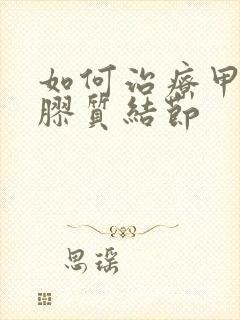 如何治療甲
膠質結節
思瑤